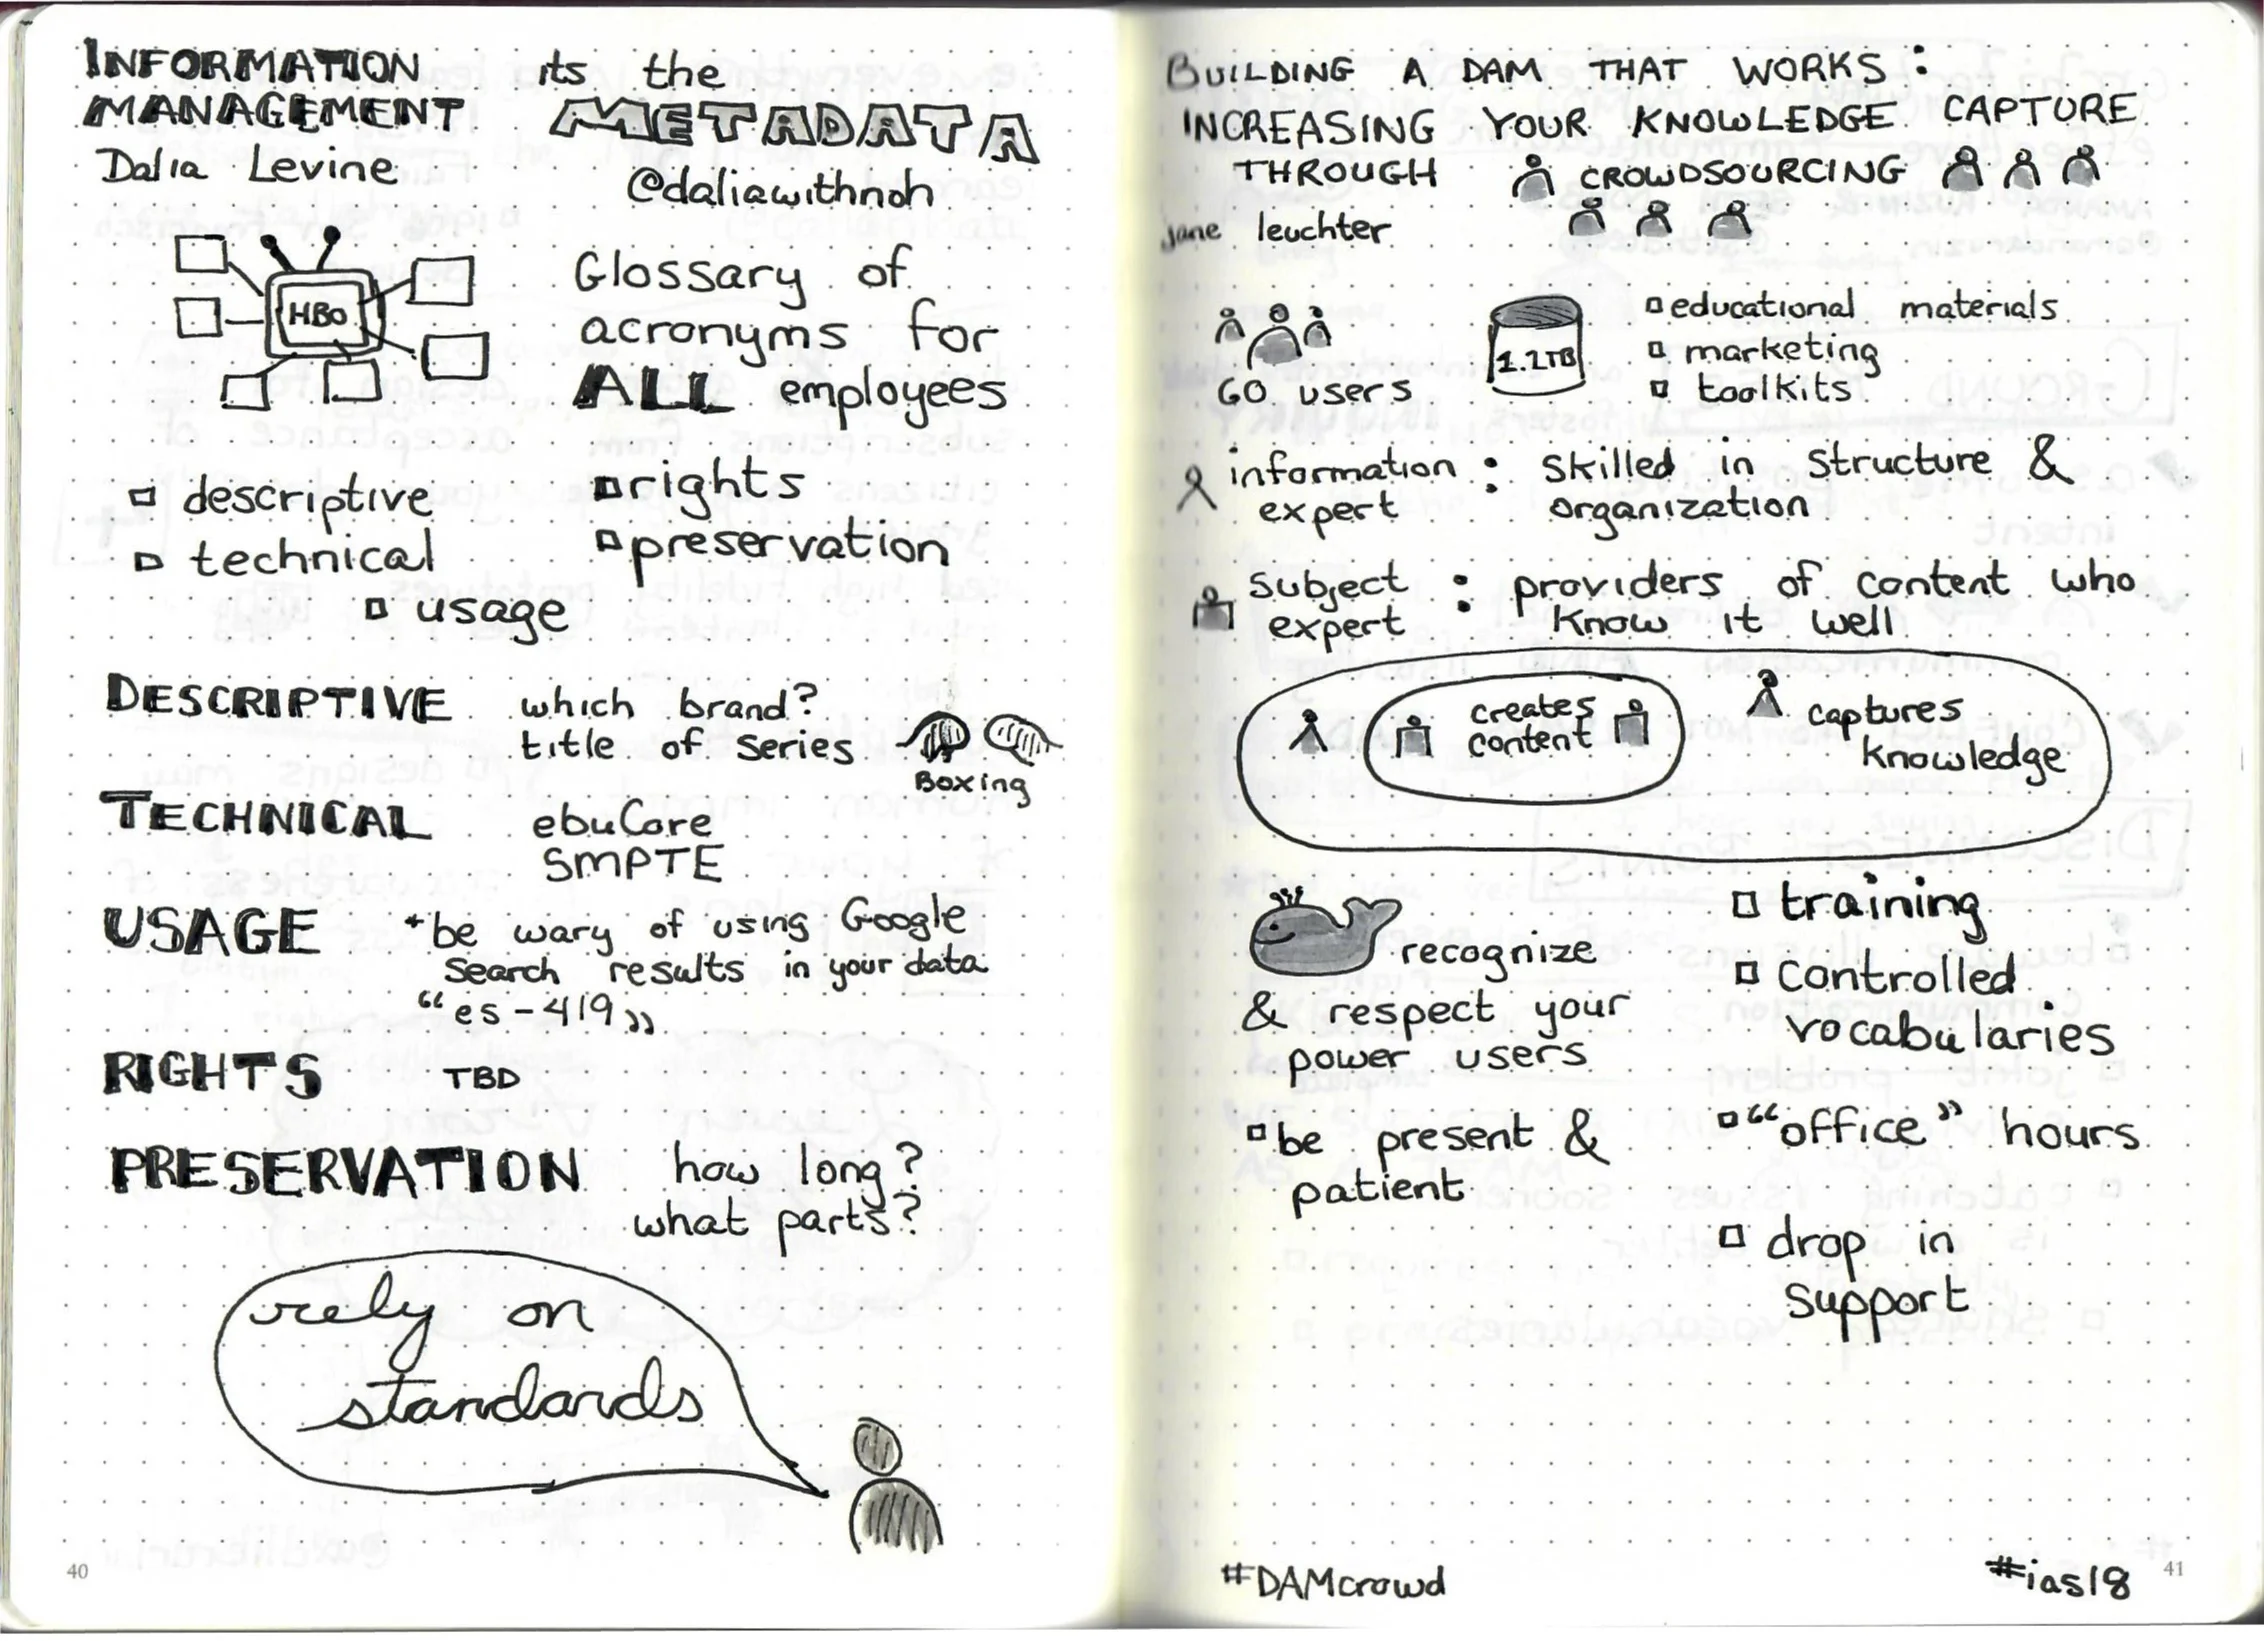 INFORMATION
MANAGEMENT
Dalia Levine
its the
METADATA
@daliawithnoh
HBO
Glossary of
acronyms for
ALL employees
descriptive
technical
usage
rights
preservation
DESCRIPTIVE which brand?
title of series
Boxing
TECHNICAL ebuCore
SMPTE
USAGE *be wary of using Google
search results in your data
“es-419”
RIGHTS TBD
PRESERVATION how long?
what parts?
rely on
standards
40
BUILDING A DAM THAT WORKS:
INCREASING YOUR KNOWLEDGE CAPTURE
THROUGH CROWDSOURCING
jane leuchter
60 users
1.2TB
educational materials
marketing
toolkits
information : skilled in structure &
expert organization
subject : providers of content who
expert know it well
creates
content
captures
knowledge
recognize
& respect your
power users
be present &
patient
training
controlled
vocabularies
“office” hours
drop in
support
#DAMcrowd
#ias18
41